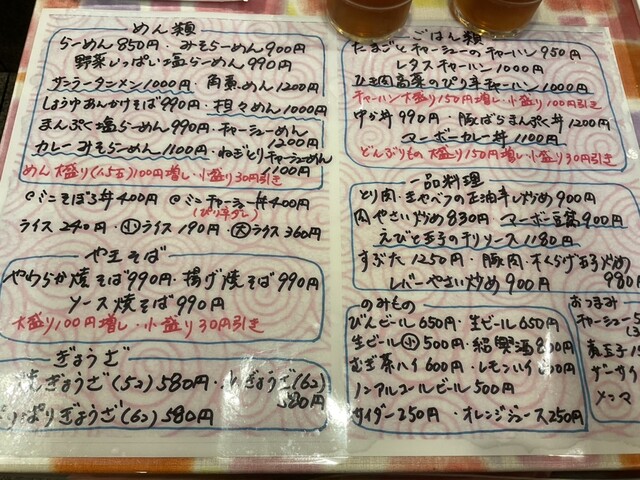 めん類
らーめん 850円・みそらーめん 900円
野菜いっぱい塩らーめん 990円
サンラータンメン 1000円・角煮めん 1200円
しょうゆあんかけそば 990円・担々めん 1000円
まんぷく塩らーめん 990円・チャーシューめん 1200円
カレーみそらーめん 1100円・ねぎとりチャーシューめん 1100円
めん大盛り(1.5玉)100円増し・小盛り30円引き
@ミニそぼろ丼 400円 @ミニチャーシュー丼 400円
(ぴり辛ダレ)
ライス 240円・小ライス 190円・大ライス 360円
やきそば
やわらか焼そば 990円・揚げ焼そば 990円
ソース焼そば 990円
大盛り100円増し・小盛り30円引き
ぎょうざ
ぎょうざ(5コ)580円・ぎょうざ(6コ)580円
ぱりぎょうざ(6コ)580円
ごはん類
たまごとチャーシューのチャーハン 950円
レタスチャーハン 1000円
ひき肉高菜のぴり辛チャーハン 1000円
チャーハン大盛り150円増し・小盛り100円引き
中か丼 990円・豚ばらまんぷく丼 1200円
マーボーカレー丼 1100円
どんぶりもの 大盛り150円増し・小盛り100円引き
一品料理
とり肉・キャベツの正油辛し炒め 900円
肉やさい炒め 830円・マーボ豆腐 900円
えびと玉子のチリソース 1180円
すぶた 1250円・豚肉・木くらげ玉子炒め 980円
レバーやさい炒め 900円
のみもの
びんビール 650円・生ビール 650円
生ビール小 500円・紹興酒 800円
むぎ茶ハイ 600円・レモンハイ 600円
ノンアルコールビール 500円
サイダー 250円・オレンジジュース 250円
おつまみ
チャーシュー
ザーサイ
メンマ